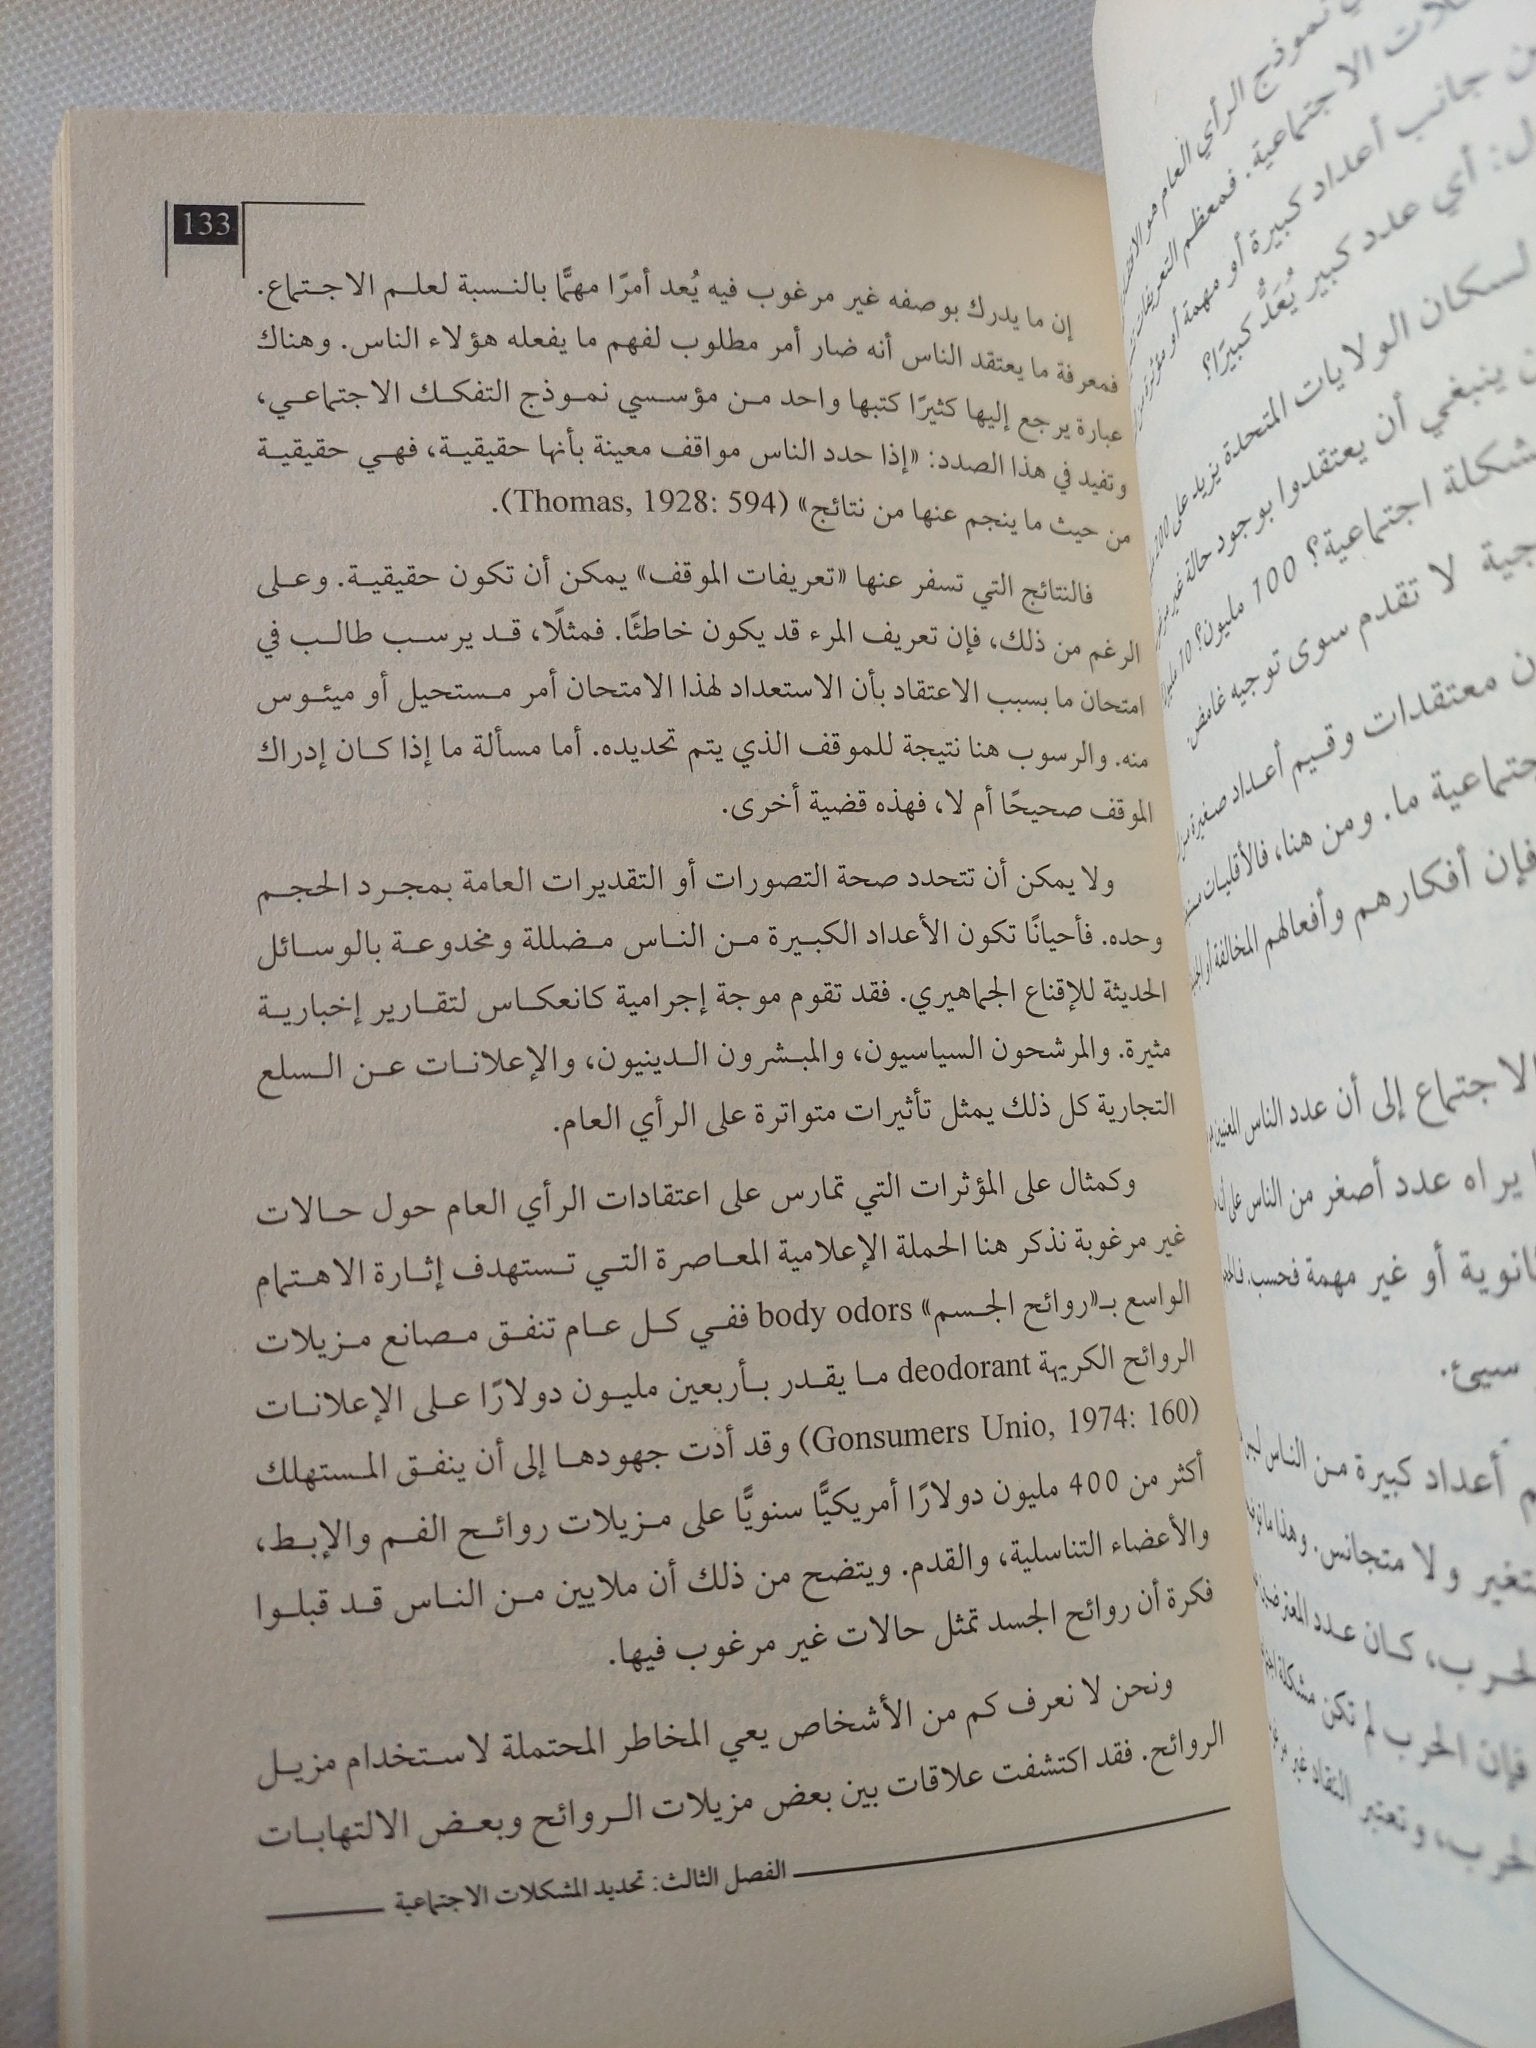 133
إن ما يدرك بوصفه غير مرغوب فيه يُعد أمرًا مهمًّا بالنسبة لعلم الاجتماع.
فمعرفة ما يعتقد الناس أنه ضار أمر مطلوب لفهم ما يفعله هؤلاء الناس. وهناك
عبارة يرجع إليها كثيرًا كتبها واحد من مؤسسي نموذج التفكك الاجتماعي،
وتفيد في هذا الصدد: «إذا حدد الناس مواقف معينة بأنها حقيقية، فهي حقيقية
من حيث ما ينجم عنها من نتائج» (Thomas, 1928: 594).
فالنتائج التي تسفر عنها «تعريفات الموقف» يمكن أن تكون حقيقية. وعلى
الرغم من ذلك، فإن تعريف المرء قد يكون خاطئًا. فمثلًا، قد يرسب طالب في
امتحان ما بسبب الاعتقاد بأن الاستعداد لهذا الامتحان أمر مستحيل أو ميئوس
منه. والرسوب هنا نتيجة للموقف الذي يتم تحديده. أما مسألة ما إذا كان إدراك
الموقف صحيحًا أم لا، فهذه قضية أخرى.
ولا يمكن أن تتحدد صحة التصورات أو التقديرات العامة بمجرد الحجم
وحده. فأحيانًا تكون الأعداد الكبيرة من الناس مضللة ومخدوعة بالوسائل
الحديثة للإقناع الجماهيري. فقد تقوم موجة إجرامية كانعكاس لتقارير إخبارية
مثيرة. والمرشحون السياسيون، والمبشرون الدينيون، والإعلانات عن السلع
التجارية كل ذلك يمثل تأثيرات متواترة على الرأي العام.
وكمثال على المؤثرات التي تمارس على اعتقادات الرأي العام حول حالات
غير مرغوبة نذكر هنا الحملة الإعلامية المعاصرة التي تستهدف إثارة الاهتمام
الواسع بـ«روائح الجسم» body odors ففي كل عام تنفق مصانع مزيلات
الروائح الكريهة deodorant ما يقدر بأربعين مليون دولارًا على الإعلانات
(Gonsumers Unio, 1974: 160) وقد أدت جهودها إلى أن ينفق المستهلك
أكثر من 400 مليون دولارًا أمريكيًّا سنويًّا على مزيلات روائح الفم والإبط،
والأعضاء التناسلية، والقدم. ويتضح من ذلك أن ملايين من الناس قد قبلوا
فكرة أن روائح الجسد تمثل حالات غير مرغوب فيها.
ونحن لا نعرف كم من الأشخاص يعي المخاطر المحتملة لاستخدام مزيل
الروائح. فقد اكتشفت علاقات بين بعض مزيلات الروائح وبعض الالتهابات
الفصل الثالث: تحديد المشكلات الاجتماعية
نموذج الرأي العام هو
الاجتماعية. فمعظم التعريفات
جانب أعداد كبيرة أو مهمة أو
أي عدد كبير يُعَدُّ كبيرًا؟
لسكان الولايات المتحدة يزيد على 200
ينبغي أن يعتقدوا بوجود حالة غير
اجتماعية؟ 100 مليون؟ 10
لا تقدم سوى توجيه غامض
معتقدات وقيم أعداد صغيرة
ما. ومن هنا، فالأقليات
فإن أفكارهم وأفعالهم المخالفة
الاجتماع إلى أن عدد الناس المعنيين
يراه عدد أصغر من الناس على
أو غير مهمة فحسب.
سيئ.
أعداد كبيرة من الناس
ولا متجانس. وهذا ما
كان عدد
فإن الحرب لم تكن مشكلة
وتعتبر